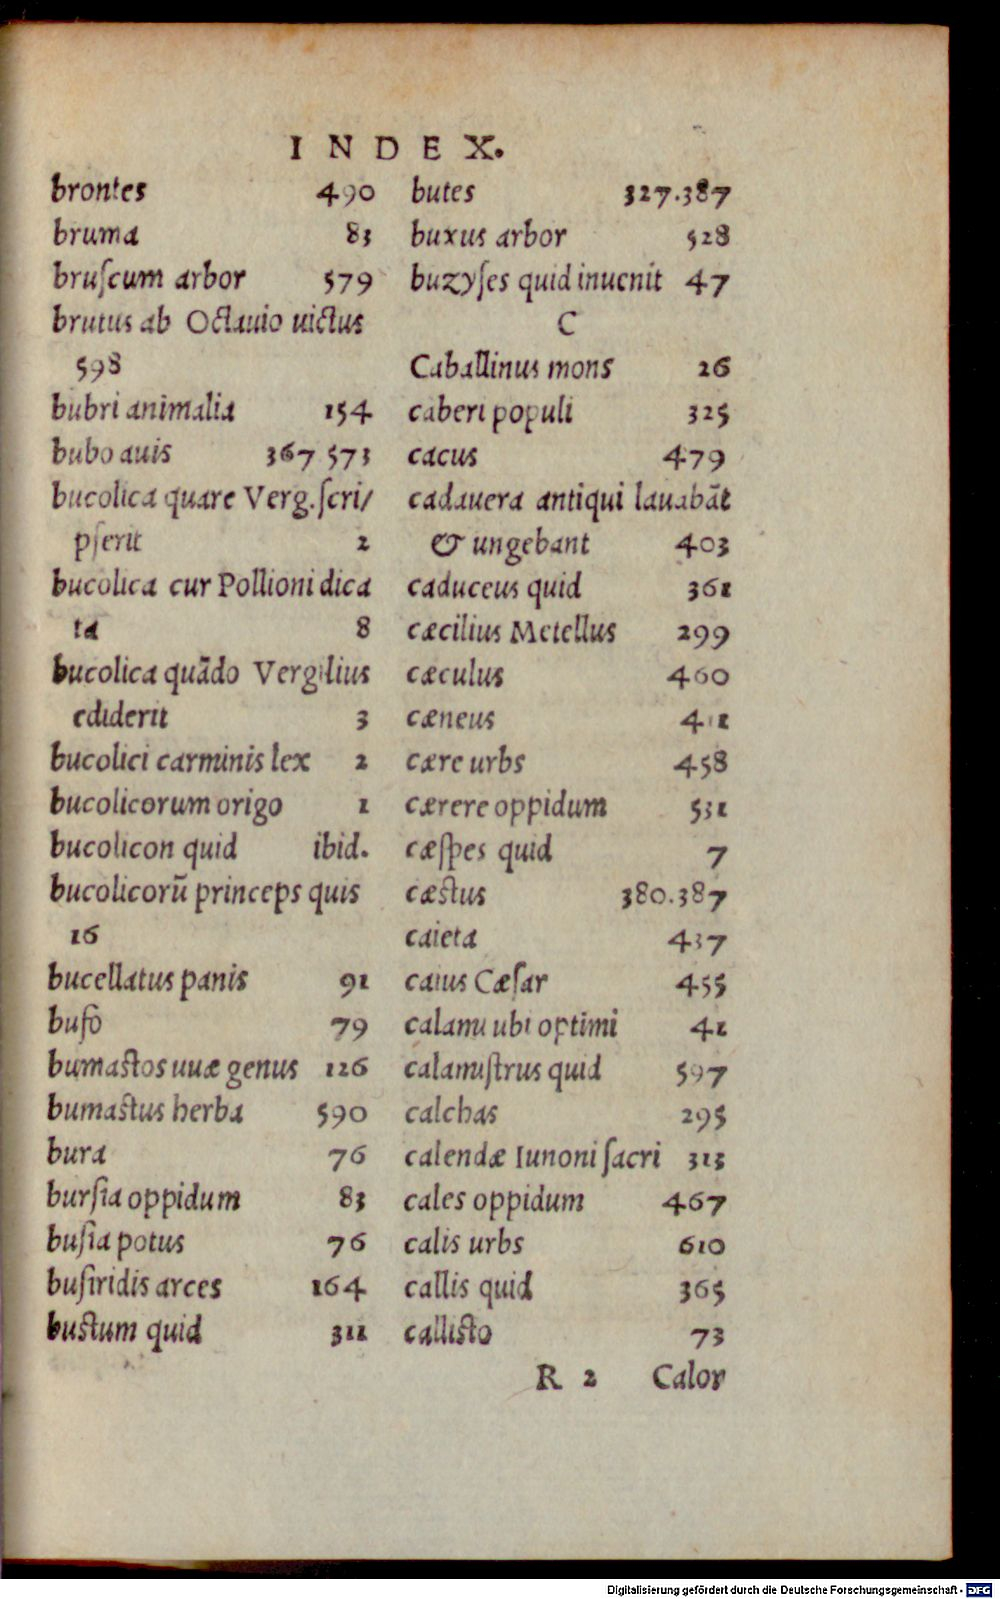 INDEX.
brontes 490
bruma 83
bruſcum arbor 579
brutus ab Octauio uictus
598
bubri animalia 154
bubo auis 367 573
bucolica quare Verg.ſcri/
pſerit 2
bucolica cur Pollioni dica
ta 8
bucolica quãdo Vergilius
ediderit 3
bucolici carminis lex 2
bucolicorum origo 1
bucolicon quid ibid.
bucolicorũ princeps quis
16
bucellatus panis 91
bufo 79
bumastos uuæ genus 126
bumastus herba 590
bura 76
burſia oppidum 83
buſia potus 76
buſiridis arces 164
bustum quid 311
butes 327.387
buxus arbor 528
buzyſes quid inuenit 47
C
Caballinus mons 26
caberi populi 325
cacus 479
cadauera antiqui lauabãt
& ungebant 403
caduceus quid 361
cæcilius Metellus 299
cæculus 460
cæneus 411
cære urbs 458
cærere oppidum 531
cæſpes quid 7
cæstus 380.387
caieta 437
caius Cæſar 455
calami ubi optimi 41
calamiſtrus quid 597
calchas 295
calendæ Iunoni ſacri 313
cales oppidum 467
calis urbs 610
callis quid 365
callisto 73
R 2 Calor
Digitalisierung gefördert durch die Deutsche Forschungsgemeinschaft - DFG